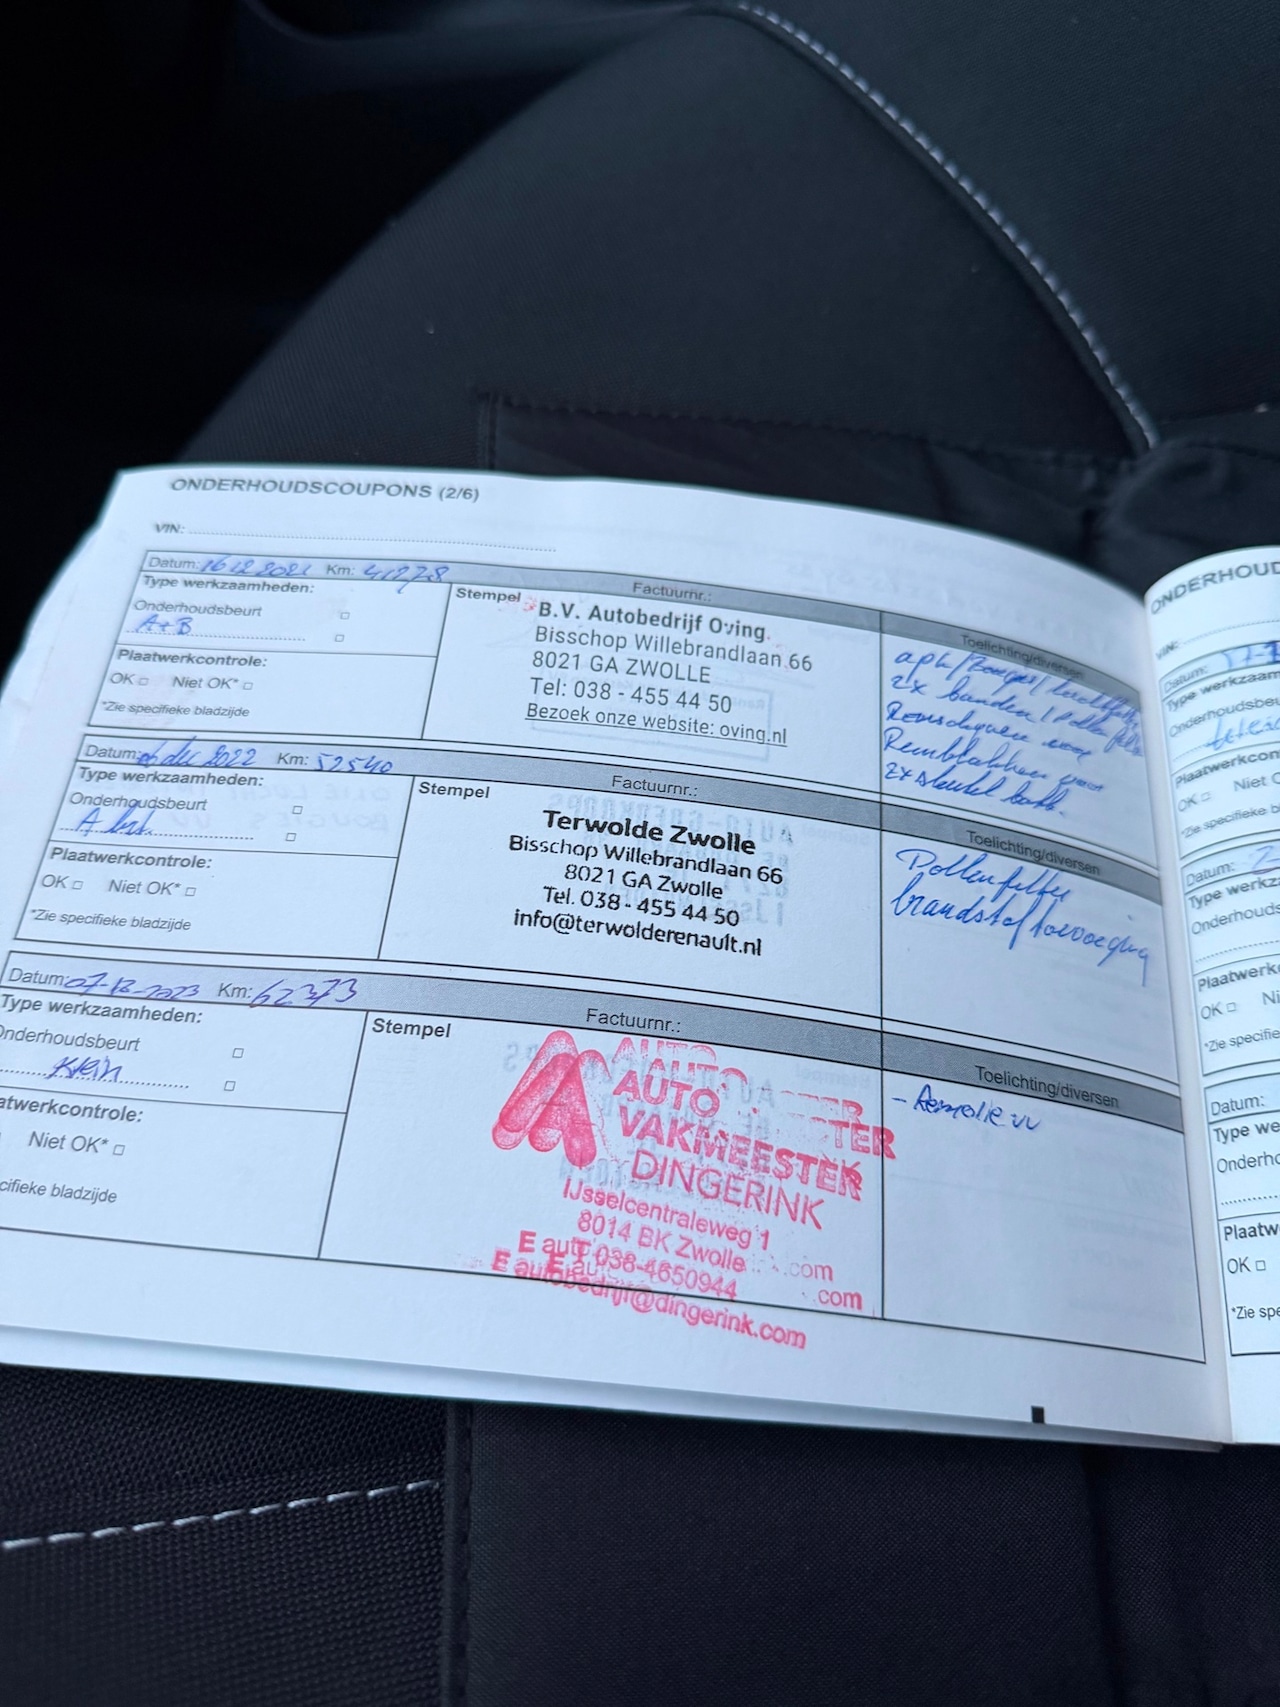 ONDERHOUDSCOUPONS (2/6)
VIN:
Datum: 16 12 2021 Km: 41278 Factuurnr.:
Type werkzaamheden:
Onderhoudsbeurt
A+B
Plaatwerkcontrole:
OK Niet OK*
*Zie specifieke bladzijde
Stempel
B.V. Autobedrijf Oving
Bisschop Willebrandlaan 66
8021 GA ZWOLLE
Tel: 038 - 455 44 50
Bezoek onze website: oving.nl
Toelichting/diversen
apk/Bougies/
2x banden / Pollenfilter
Remschijven voor
Remblokken voor
2x sleutel batt.
Datum: 06 dec 2022 Km: 52540 Factuurnr.:
Type werkzaamheden:
Onderhoudsbeurt
A
Plaatwerkcontrole:
OK Niet OK*
*Zie specifieke bladzijde
Stempel
Terwolde Zwolle
Bisschop Willebrandlaan 66
8021 GA Zwolle
Tel. 038 - 455 44 50
info@terwolderenault.nl
Toelichting/diversen
Pollenfilter
brandstoftoevoeging
Datum: 07-12-2023 Km: 62373 Factuurnr.:
Type werkzaamheden:
Onderhoudsbeurt
Klein
atwerkcontrole:
Niet OK*
cifieke bladzijde
Stempel
AUTO
AUTO
AUTO
VAKMEESTER
DINGERINK
IJsselcentraleweg 1
8014 BK Zwolle
T 038-4650944
E autobedrijf@dingerink.com
Toelichting/diversen
- Remolie vv
ONDERHOUD
VIN:
Datum:
Type werkzaam
Onderhoudsbeu
Plaatwerkcon
OK Niet O
*Zie specifieke
Datum:
Type werkza
Onderhouds
Plaatwerk
OK Ni
*Zie specifie
Datum:
Type we
Onderho
Plaatw
OK
*Zie spe